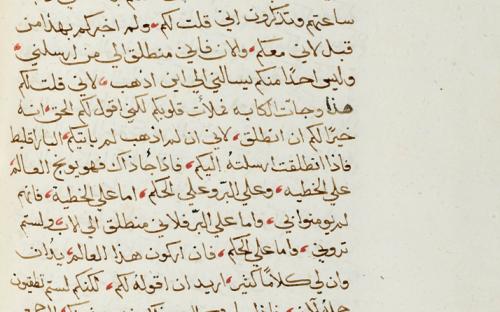 ساعتهم وتذكرون اني قلت لكم ولم اخبركم بهذا من
قبل لاني معكم والان فاني منطلق الي من ارسلني
وليس احدًا منكم يسالني الي اين اذهب لاني قلت لكم
هذا وجات الكابه فملأت قلوبكم لكني اقول لكم الحق انه
خيرًا لكم ان انطلق لاني ان لم اذهب لم ياتيكم البارقليط
فاذا انطلقت ارسلته اليكم فاذا جا ذاك فهو يوبخ العالم
علي الخطيه وعلي البر وعلي الحكم اما علي الخطية فانهم
لم يومنوا بي واما علي البر فلاني منطلق الي الاب ولستم
تروني واما علي الحكم فان اركون هذا العالم يُدان
وان لي كلامًا كثير اريد ان اقوله لكم لكنكم لستم تطيقون
حمله الان